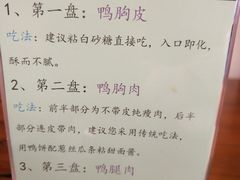 1、第一盘：鸭胸皮
吃法：建议粘白砂糖直接吃，入口即化，
酥而不腻。
2、第二盘：鸭胸肉
吃法：前半部分为不带皮纯瘦肉，后半
部分连皮带肉，建议您采用传统吃法，
用鸭饼配葱丝瓜条粘甜面酱。
3、第三盘：鸭腿肉